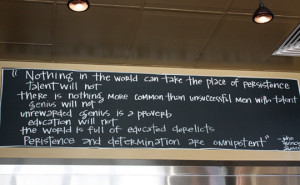 "Nothing in the world can take the place of persistence
talent will not
there is nothing more common than unsuccessful men with talent
genius will not
unrewarded genius is a proverb
education will not
the world is full of educated derelicts
Persistence and determination are omnipotent"